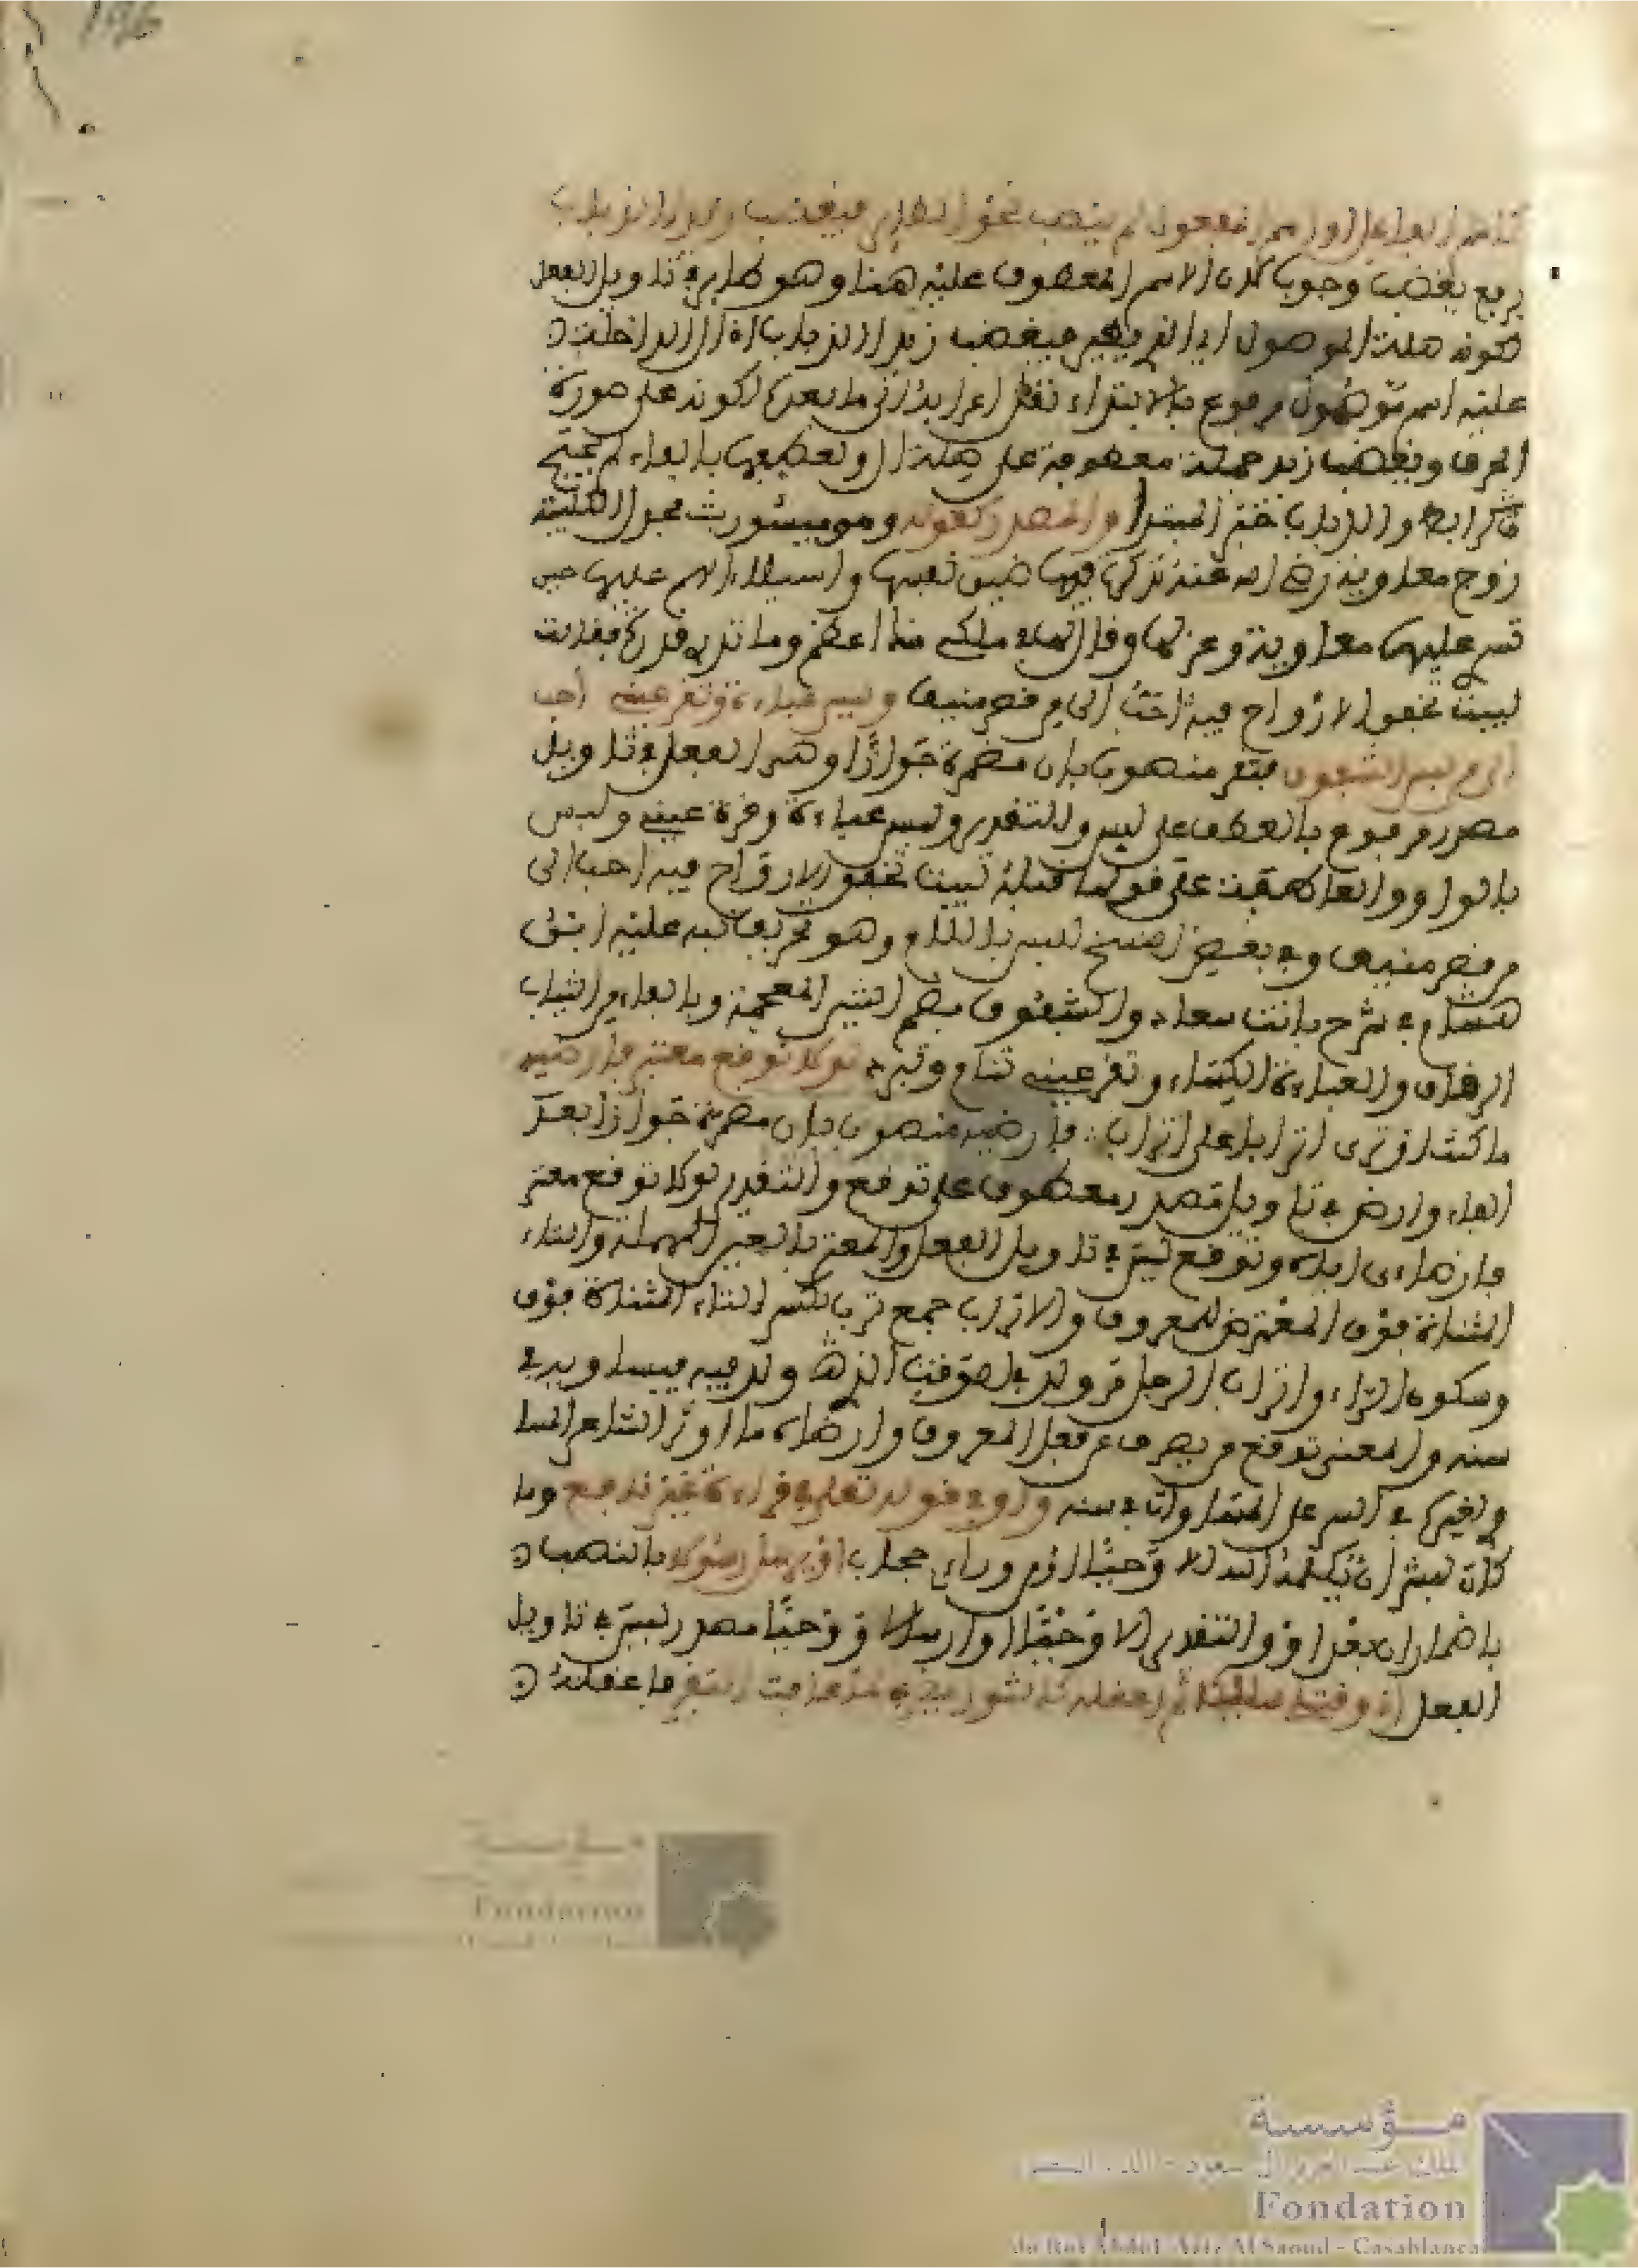 كاسم الفاعل او اسم المفعول لم ينصب نحو الطاير فيغضب زيد الذباب
برفع يغضب وجوبا لان الاسم المعطوف عليه هنا وهو طاير في تاويل الفعل
لكونه صلة الموصول اي الذي يطير فيغضب زيد الذباب اذ ال الداخلة
عليه اسم موصول مرفوع بالابتداء نقل اعرابه الى ما بعده لكونه على صورة
الحرف ويغضب زيد جملة معطوفة على صلة ال ولعطفها بالفاء لم تحتج
الى رابط والذباب خبر المبتدا والمصدر كقوله وهو ميسون بنت بحدل الكلبية
زوج معاوية رضي الله عنه تذكر ضيق نفسها واستيلاء الهم عليها حين
تسرى عليها معاوية وعزلها وقال انت في ملك ما اعظم وما تدري قدره فقالت
لبيت تخفق الارواح فيه احب الي من قصر منيف ولبس عباءة وتقر عيني احب
الي من لبس الشفوف فتقر منصوب بان مضمرة جوازا وهذا الفعل في تاويل
مصدر مرفوع بالعطف على لبس والتقدير ولبس عباءة وقرة عيني ولبس
بالواو والعاطفة على قولها قبله لبيت تخفق الارواح فيه احب الي
من قصر منيف وفي بعض النسخ للبس باللام وهو تحريف نبه عليه ابن
هشام في شرح بانت سعاد والشفوف بضم الشين المعجمة وبالفاء من الثياب
الرقاق والعباءة الكساء وتقر عيني تنام وتبرد لولا توقع معتر فارضيه
ما كنت اوثر اترابا على اتراب فارضيه منصوب بان مضمرة جوازا بعد
الفاء وارضي في تاويل مصدر معطوف على توقع والتقدير لولا توقع معتر
فارضاءي اياه وتوقع ليس في تاويل الفعل والمعتر بالعين المهملة والتاء
المثناة فوق المعترض للمعروف والاتراب جمع ترب بكسر التاء المثناة فوق
وسكون الراء واتراب الرجل من ولد في الوقت الذي ولد فيه فيساويه في
سنه والمعنى توقع من يصرف عن فعل المعروف وارضاءه ما اوثر الشاعر المسا
وغيره في السن على المساواة في سنه واو في قوله تعلى في قراءة غير نافع وما
كان لبشر ان يكلمه الله الا وحيا او من وراء حجاب او يرسل رسولا بالنصب
باضمار ان بعد او والتقدير الا وحيا او ارسالا ووحيا مصدر ليس في تاويل
الفعل اني وقتلي سليكا ثم اعقله كالثور يضرب لما عافت البقر فاعقله
Fondation
مؤسسة
الملك عبد العزيز آل سعود - الدار البيضاء
Fondation
du Roi Abdul-Aziz Al Saoud - Casablanca